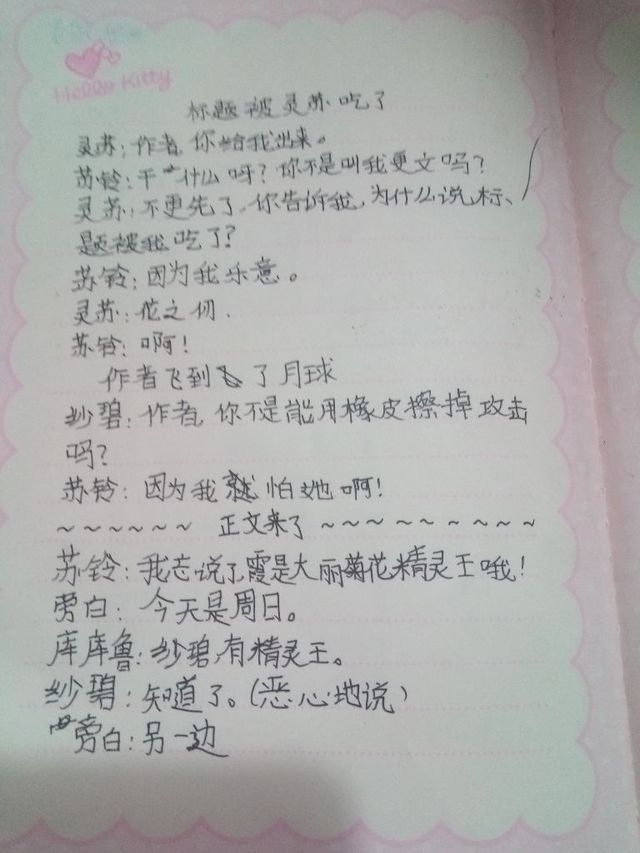 Hello Kitty
标题被灵苏吃了
灵苏：作者，你给我出来。
苏铃：干什么呀？你不是叫我更文吗？
灵苏：不更先了，你告诉我，为什么说，标、
题被我吃了？
苏铃：因为我乐意。
灵苏：花之仞．
苏铃：啊！
作者飞到了月球
纱碧：作者，你不是能用橡皮擦掉攻击
吗？
苏铃：因为我就怕她啊！
~~~~~~ 正文来了 ~~~~~~~~~
苏铃：我忘说了霞是大丽菊花精灵王哦！
旁白：今天是周日。
库库鲁：纱碧，有精灵王。
纱碧：知道了。（恶心地说）
旁白：另一边